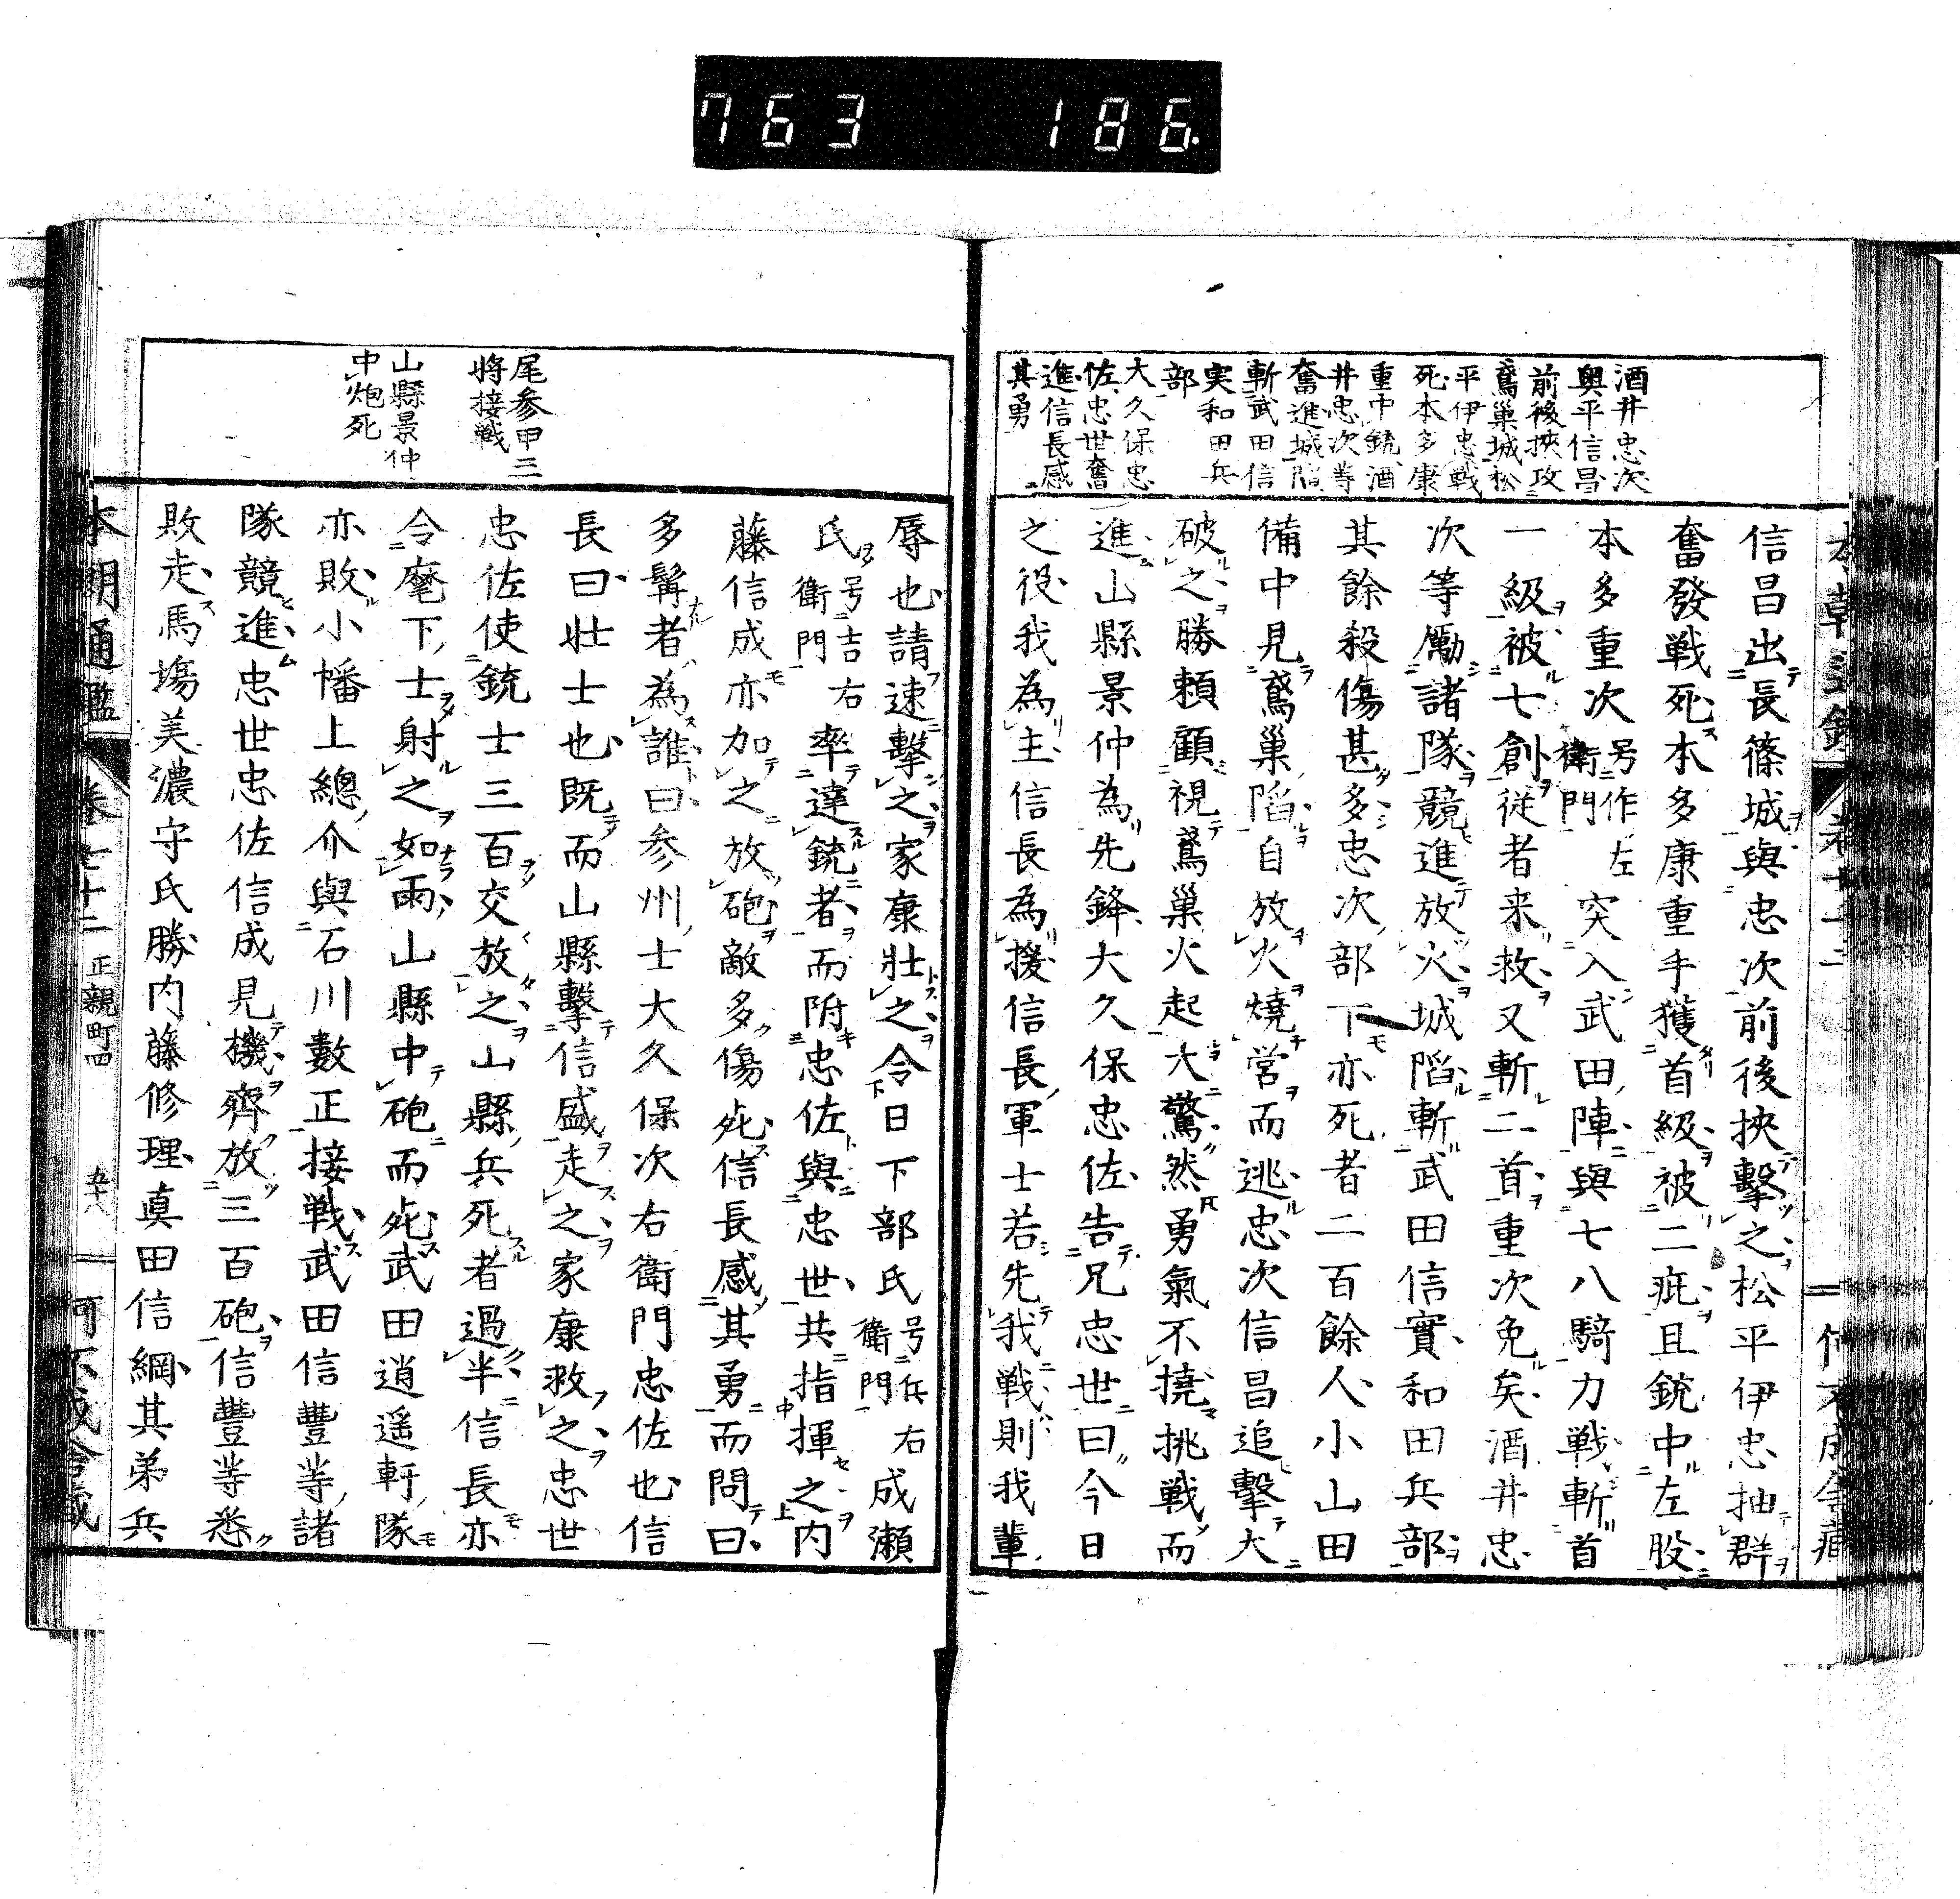 763 186
酒井忠次
奥平信昌
前後挾攻
鳶巢城松
平伊忠戦
死本多康
重中銃酒
井忠次等
奮進城陥
斬武田信
実和田兵
部
大久保忠
佐忠世奮
進信長感
其勇
信昌出長篠城與忠次前後挾擊之松平伊忠抽群
奮發戦死本多康重手獲首級被二疵且銃中左股
本多重次号作左衛門突入武田陣與七八騎力戦斬首
一級被七創從者来救又斬二首重次免矣酒井忠
次等勵諸隊競進放火城陥斬武田信實和田兵部
其餘殺傷甚多忠次部下亦死者二百餘人小山田
備中見鳶巢陥自放火燒営而逃忠次信昌追擊大
破之勝頼顧視鳶巢火起大驚然勇氣不撓挑戦而
進山縣景仲為先鋒大久保忠佐告兄忠世曰今日
之役我為主信長為援信長軍士若先我戦則我輩
尾参甲三
将接戦
山縣景仲
中炮死
辱也請速擊之家康壮之令日下部氏号兵右衛門成瀬
氏号吉右衛門率達銃者而附忠佐與忠世共指揮之内
藤信成亦加之放砲敵多傷死信長感其勇而問曰
多髯者為誰曰参州士大久保次右衛門忠佐也信
長曰壮士也既而山縣擊信盛走之家康救之忠世
忠佐使銃士三百交放之山縣兵死者過半信長亦
令麾下士射之如雨山縣中砲而死武田逍遥軒隊
亦敗小幡上總介與石川數正接戦武田信豐等諸
隊競進忠世忠佐信成見機齊放三百砲信豐等悉
敗走馬場美濃守氏勝内藤修理真田信綱其弟兵
本朝通鑑 卷七十二 正親町四 五十八